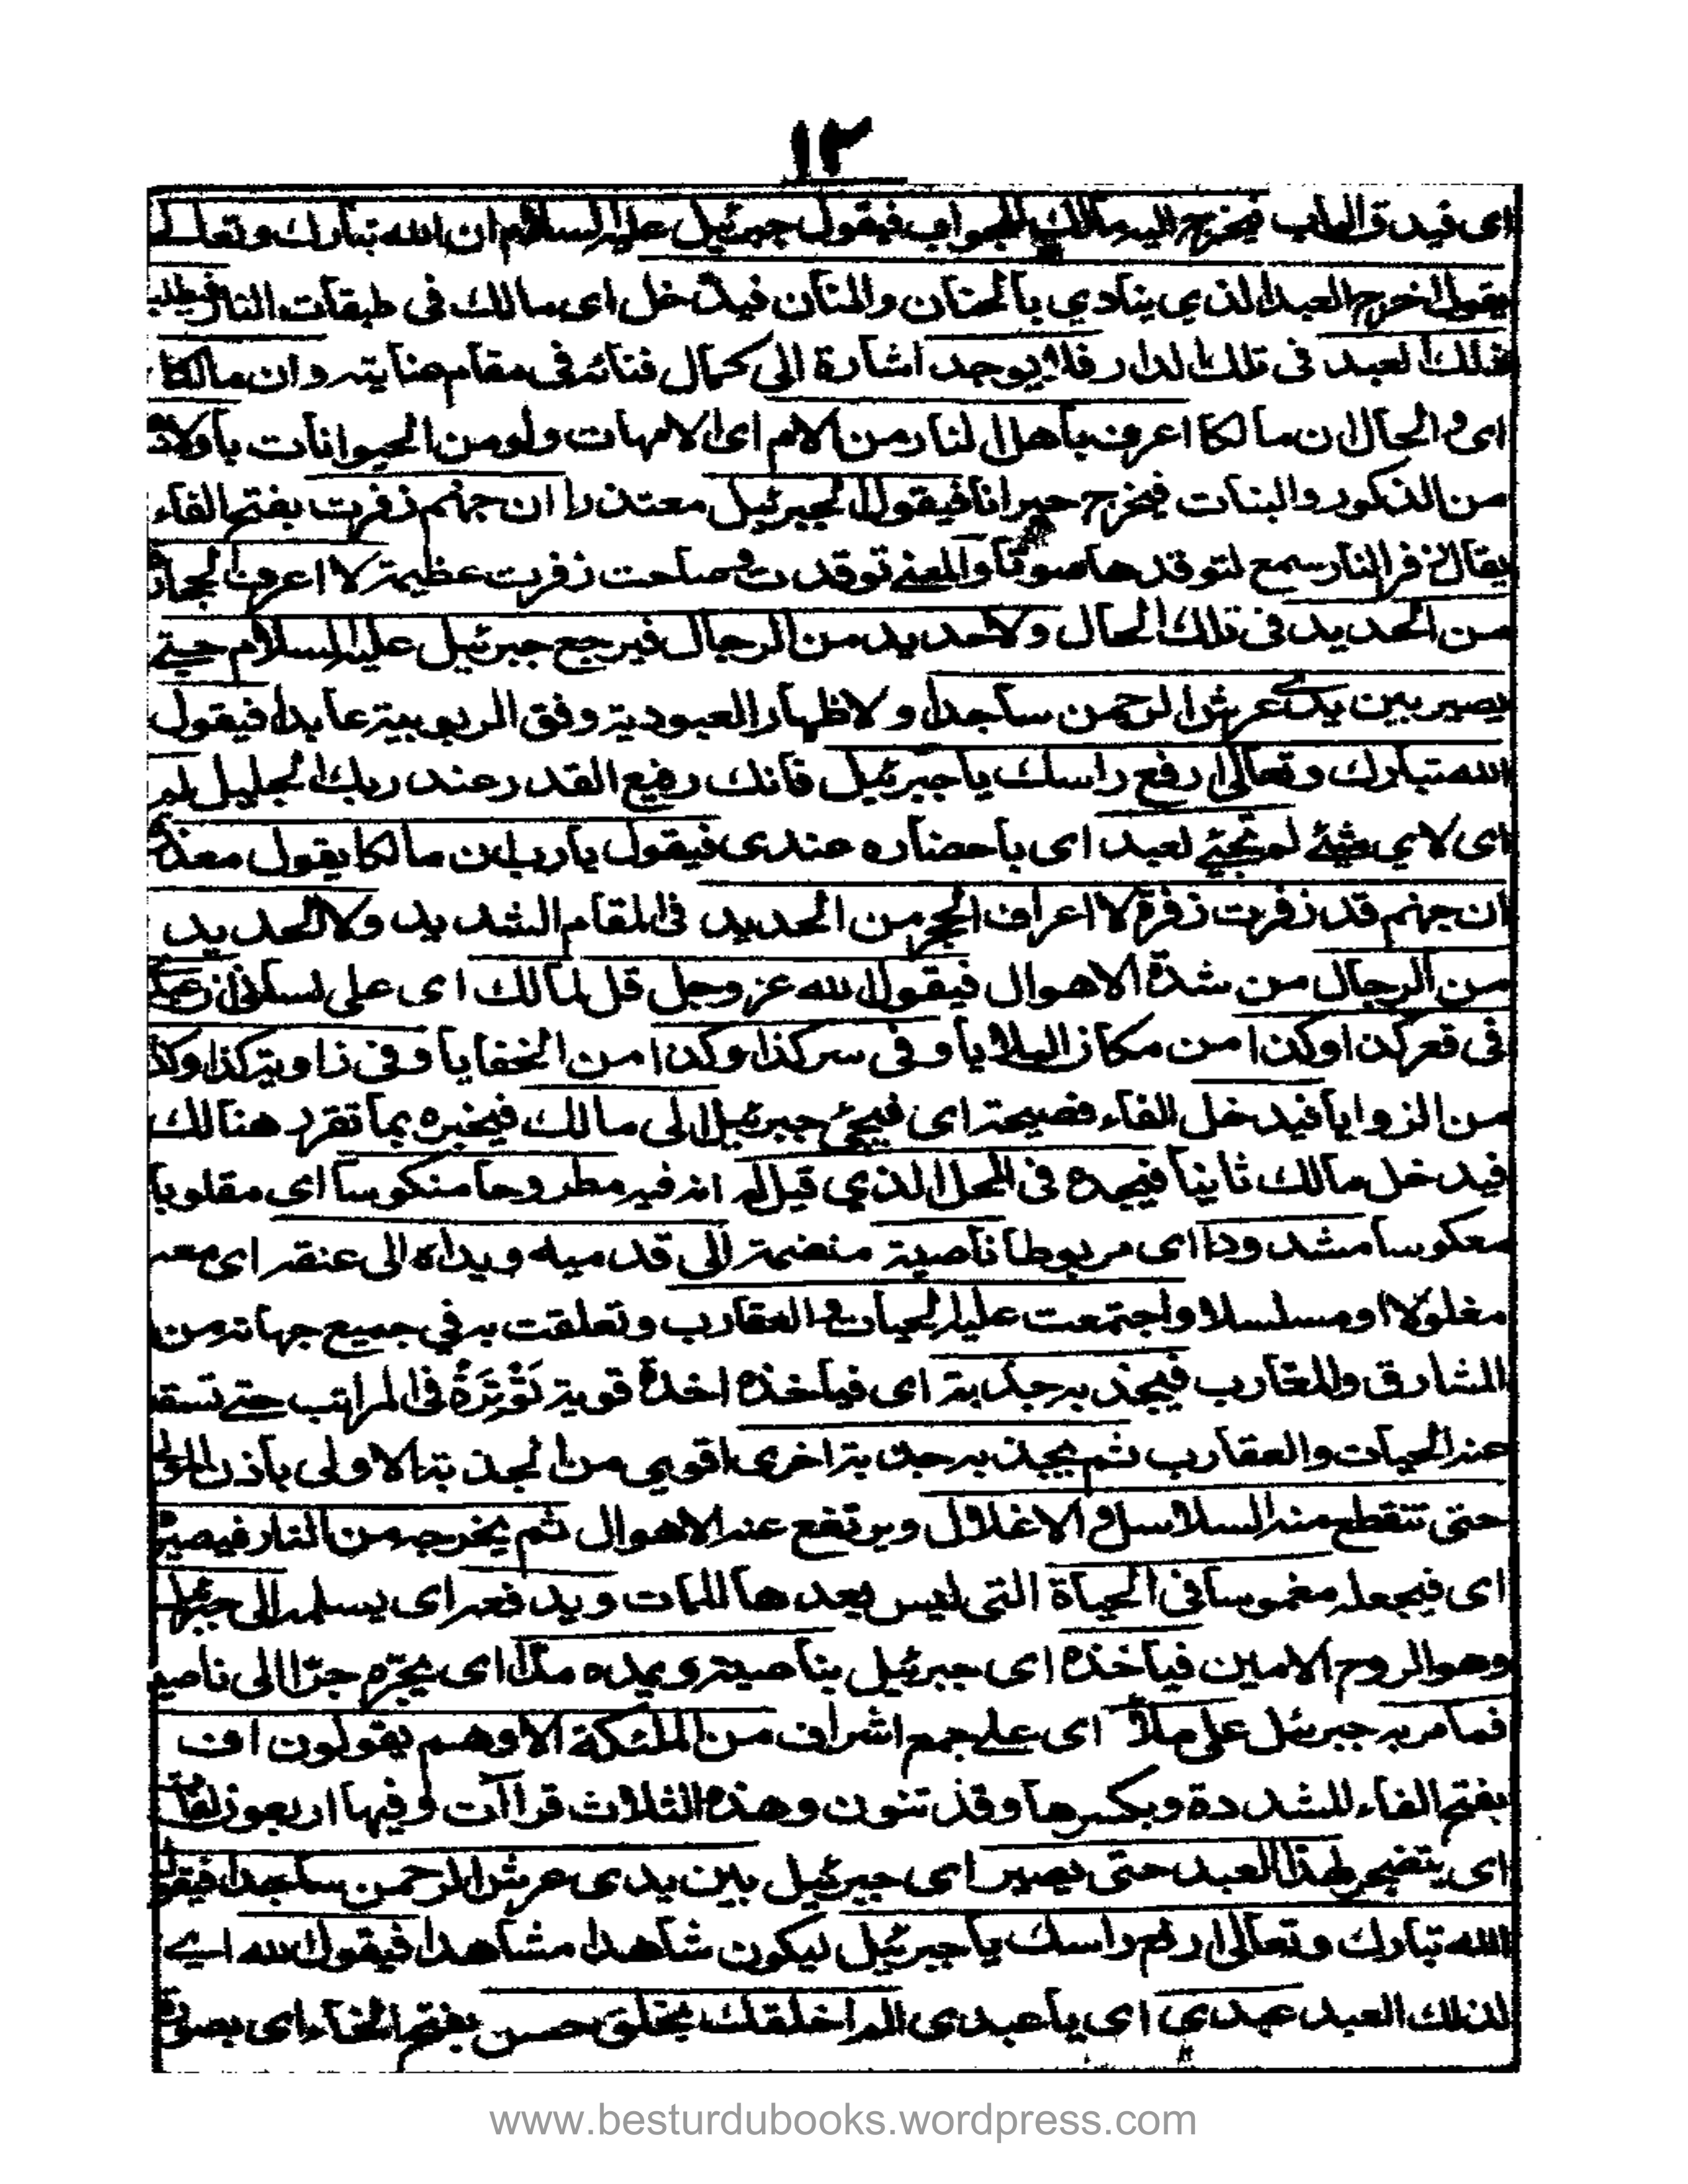 ١٢
اى فيدق الباب فيخرج اليه مالك للجواب فيقول جبرئيل عليه السلام ان الله تبارك وتعالى
يقول اخرج العبد الذي ينادي بالحنان والمنان فيدخل اى مالك فى طبقات النار فيطلب
ذلك العبد فى تلك الدار فلا يوجد اشارة الى كمال فنائه فى مقام وان مالكا
اى والحال ان مالكا اعرف باهل النار من الام اى الامهات ولو من الحيوانات باولادها
من الذكور والبنات فيخرج حيرانا فيقول لجبرئيل معتذرا ان جهنم زفرت بفتح الفاء
يقال زفر النار سمع لتوقدها صوتا والمعنے توقدت وصاحت زفرت عظيمة لا اعرف الحجارة
من الحديد فى تلك الحال ولا حديد من الرجال فيرجع جبرئيل عليه السلام حتے
يصير بين يدے عرش الرحمن ساجدا ولاظهار العبودية وفق الربوبية عابدا فيقول
الله تبارك وتعالى ارفع راسك يا جبرئيل فانك رفيع القدر عند ربك الجليل لم
اى لاي شئے لم تجئے لعبد اى باحضاره عندى فيقول يارب ان مالكا يقول معذرة
ان جهنم قد زفرت زفرة لا اعراف الحجر من الحديد فى المقام الشديد ولا الحديد
من الرجال من شدة الاهوال فيقول الله عز وجل قل لمالك اى على لسانى ان عبدى
فى قعر كذا وكذا من مكان البلايا وفى سر كذا وكذا من الخفايا وفى زاوية كذا وكذا
من الزوايا فيدخل الفاء فصيحة اى فيجئ جبرئيل الى مالك فيخبره بما تقرر هنالك
فيدخل مالك ثانيا فيجده فى المحل الذي قيل له انه فيه مطروحا منكوسا اى مقلوبا
معكوسا مشدودا اى مربوطا ناصية منضمة الى قدميه ويداه الى عنقه اى معه
مغلولا او مسلسلا واجتمعت عليه الحيات والعقارب وتعلقت به في جميع جهاته من
المشارق والمغارب فيجذبه جذبة اى فياخذه اخذة قوية تؤثرة فى المراتب حتے تسقط
عنه الحيات والعقارب ثم يجذبه جذبة اخرى اقوي من الجذبة الاولى باذن المولى
حتى تنقطع منه السلاسل والاغلال ويرتفع عنه الاهوال ثم يخرجه من النار فيصيره
اى فيجعله مغموسا فى الحياة التى ليس بعدها الممات ويدفعه اى يسلمه الى جبرئيل
وهو الروح الامين فياخذه اى جبرئيل بناصيته ويمده مدا اى يجره جرا الى ناصيه
فما مر به جبرئيل على ملأ اى علے جمع اشراف من الملئكة الا وهم يقولون اف
بفتح الفاء المشددة وبكسرها وقد تنون وهذه الثلاث قراآت وفيها اربعون لغات
اى يتضجر لهذا العبد حتى يصير اى جبرئيل بين يدى عرش الرحمن ساجدا فيقول
الله تبارك وتعالى ارفع راسك يا جبرئيل ليكون شاهدا مشاهدا فيقول الله اے
لذلك العبد عبدي اى يا عبدى الم اخلقك بخلق حسن بفتح الخاء اى بصورة
www.besturdubooks.wordpress.com